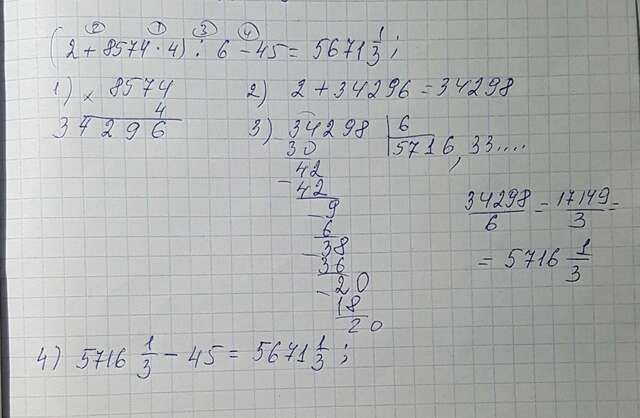 ② ① ③ ④
(2 + 8574 · 4) : 6 − 45 = 5671 1/3 ;
1) × 8574
4
34296
2) 2 + 34296 = 34298
3) 34298 | 6
30 | 5716,33....
42
− 42
− 9
6
− 38
36
− 20
18
20
34298/6 = 17149/3 =
= 5716 1/3
4) 5716 1/3 − 45 = 5671 1/3 ;